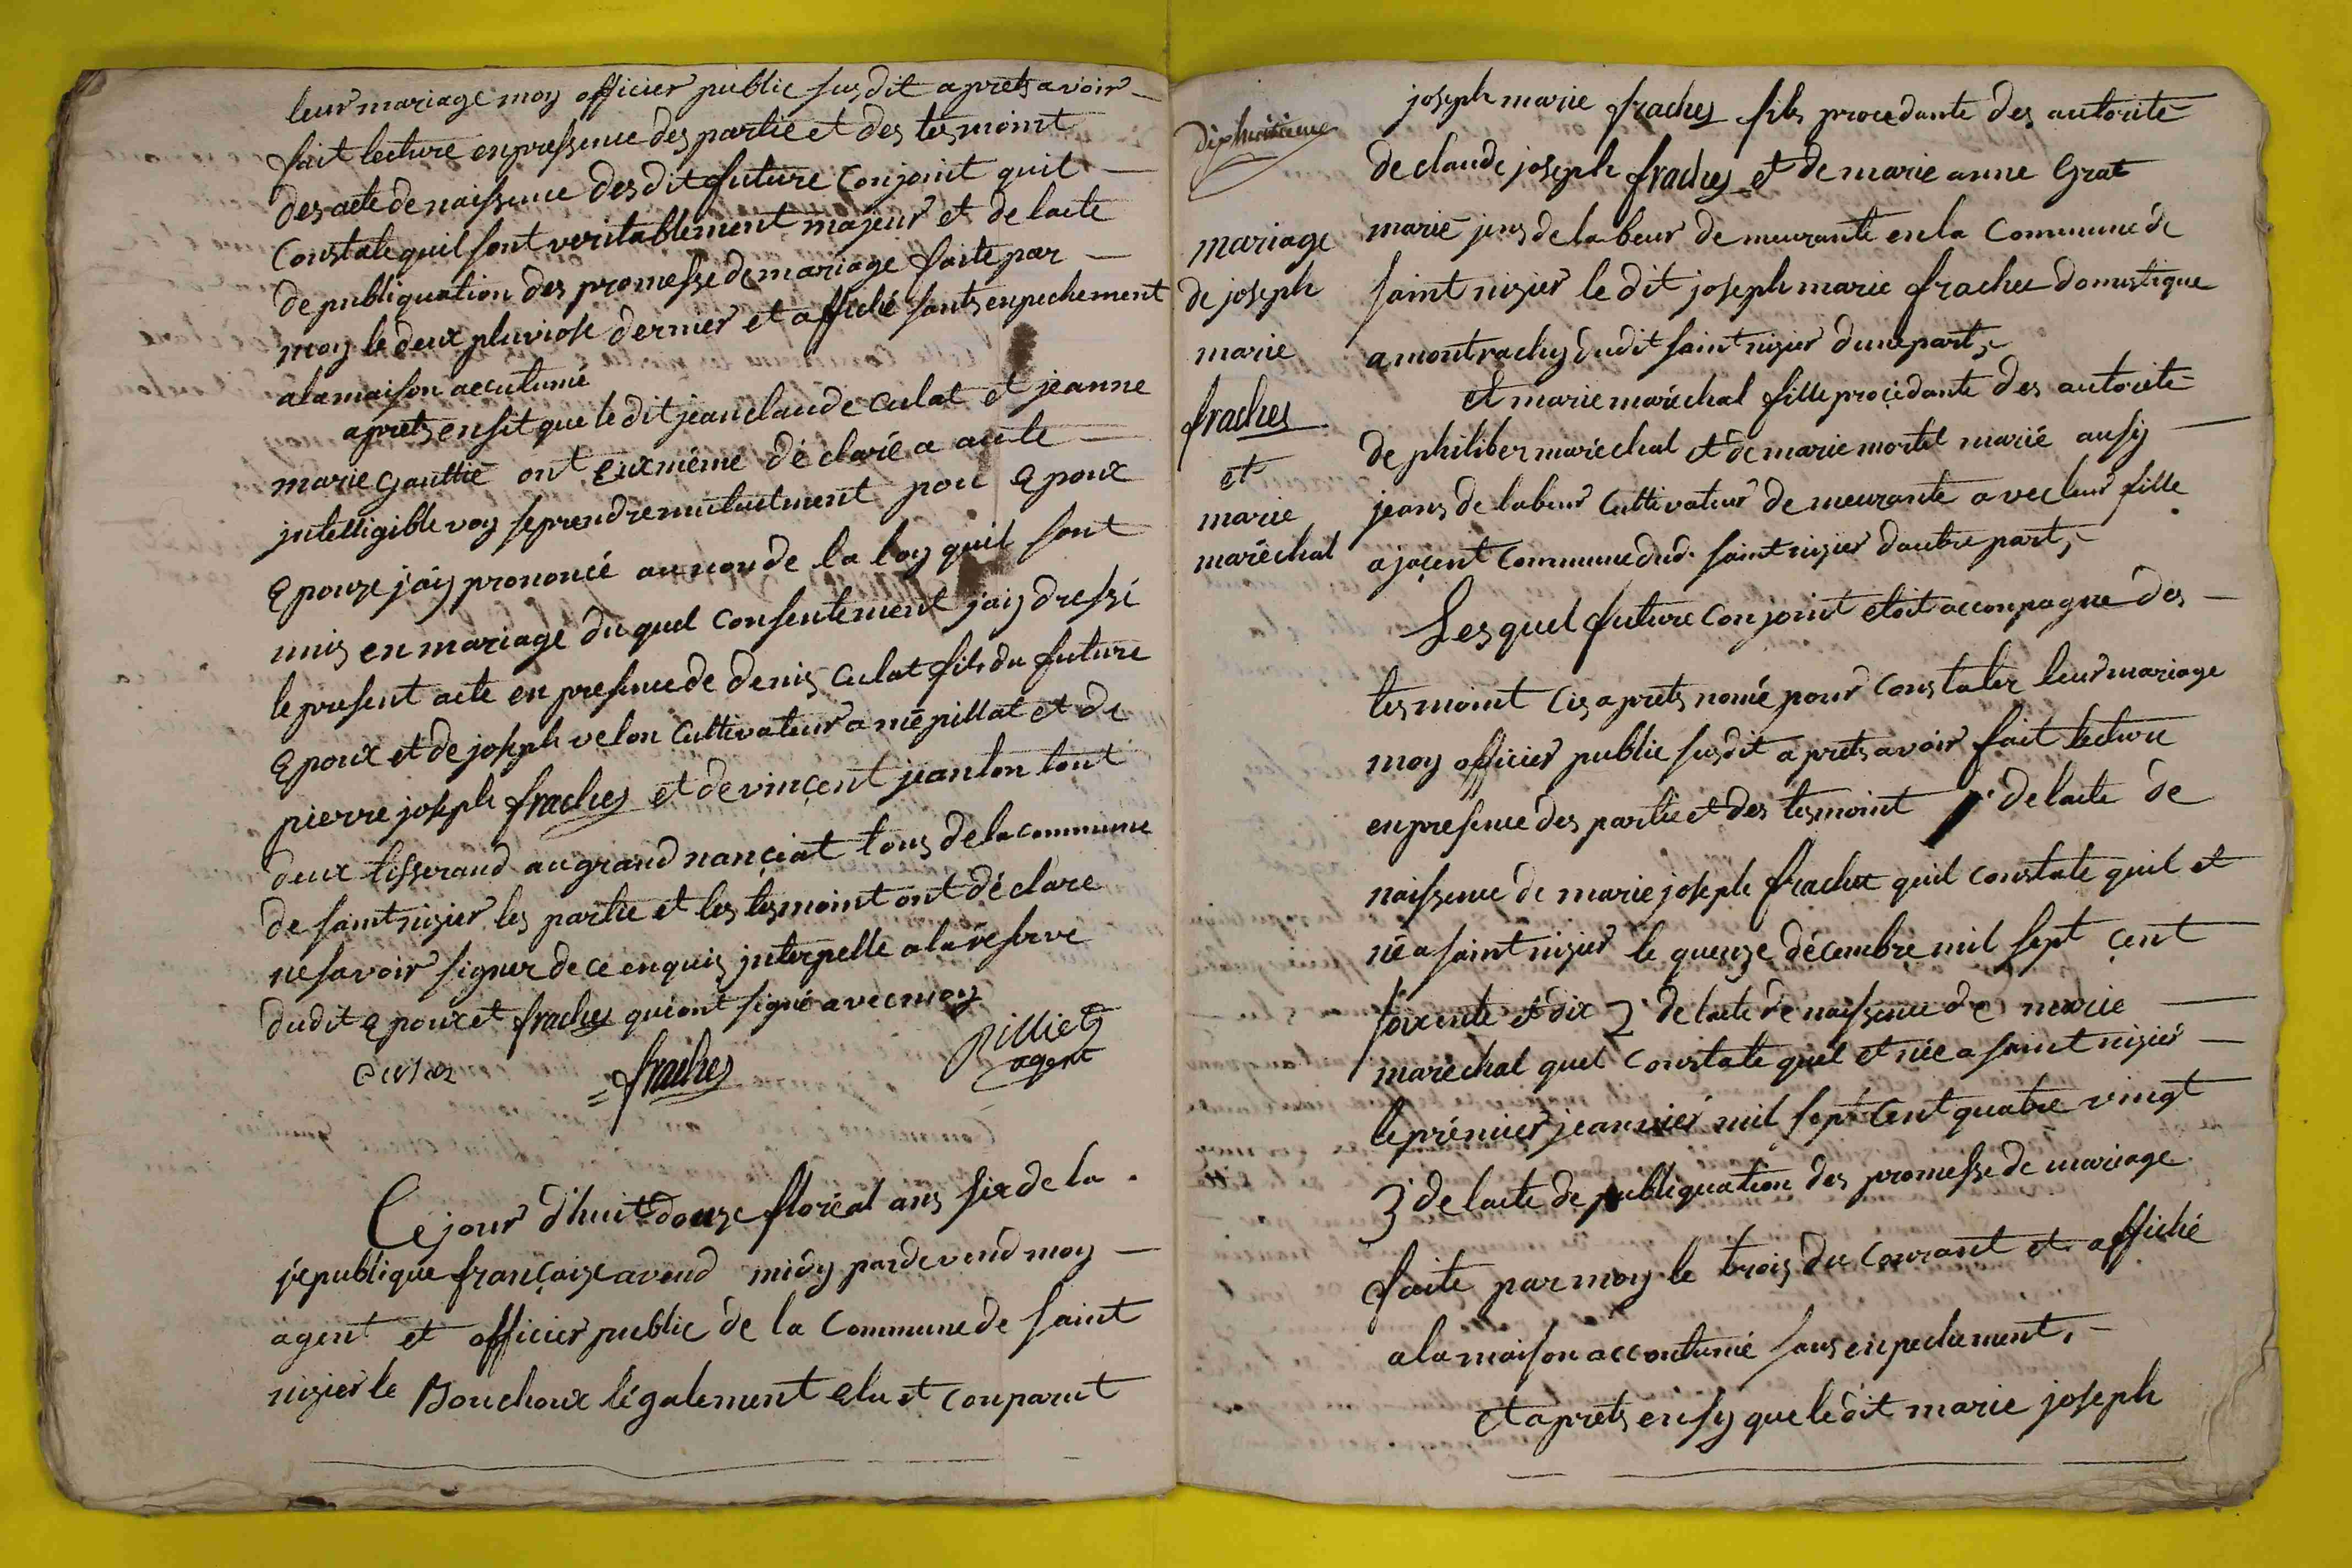 leur mariage moy officier public susdit aprets avoir
fait lecture en pressence des partie et des tesmoint
des acte de naissence des dit future conjoint quil
constate quil sont veritablement majeur et de lacte
de publiquation des promesse de mariage faite par
moy le deux pluviose dernier et affiché sants enpechement
a la maison accutumé
aprets ensit que le dit jean claude culat et jeanne
marie gauttie ont eux mème déclaré a aute
jntelligible voy se prendre mutuelment pou epoux
epouze j'aiy prononcé au nou de la loy quil sont
unis en mariage du quel consentement jaiy dressé
le present acte en presence de denis culat fils du future
epoux et de joseph velon cultivateur a mépillat et de
pierre joseph fraches et de vincent jeanton tout
deux tisserand au grand nanciat tous de la commune
de saint nizier les partie et les tesmoint ont déclare
ne savoir signer de ce enquis jnterpelle a la réserve
dudit epoux et fraches qui ont signé avec moy
Culat = fraches pilliet
agent
Ce jour d'huit douze floréal ans six de la
république françaize avend midy par devend moy
agent et officier public de la commune de saint
nizier le Bouchoux légalement elu et conparut
dixhuitieme
mariage
de joseph
marie
fraches
et
marie
maréchal
joseph marie fraches fils procedante des autorité
de claude joseph fraches et de marie anne Grat
marié jens de labeur demeurante en la commune de
saint nizier le dit joseph marie frachet domestique
a montrachy dudit saint nizier dune part,
et marie maréchal fille procedante des autorite
de philiber maréchal et de marie mortel marié ausy
jeans de labeur cultivateur demeurante avec leur fille
a jacent commune dud. saint nizier dautre part,
Les quel future conjoint etoit acconpagne des
tesmoint cis aprets nomé pour constater leur mariage
moy officier public susdit aprets avoir fait lecture
en presence des partie et des tesmoint 1° de lacte de
naissence de marie joseph frachet quil constate quil et
né a saint nizier le queuze décembre mil sept cent
soixente et dix 2° de lacte de naissence de marie
maréchal quel constate quel et née a saint nizier
le prémier jeanvier mil sept cent quatre vingt
3° de lacte de publiquation des promesse de mariage
faite par moy le trois du courant et affiché
a la maison accoutumé sans enpechement,
et aprets ensy que le dit marie joseph